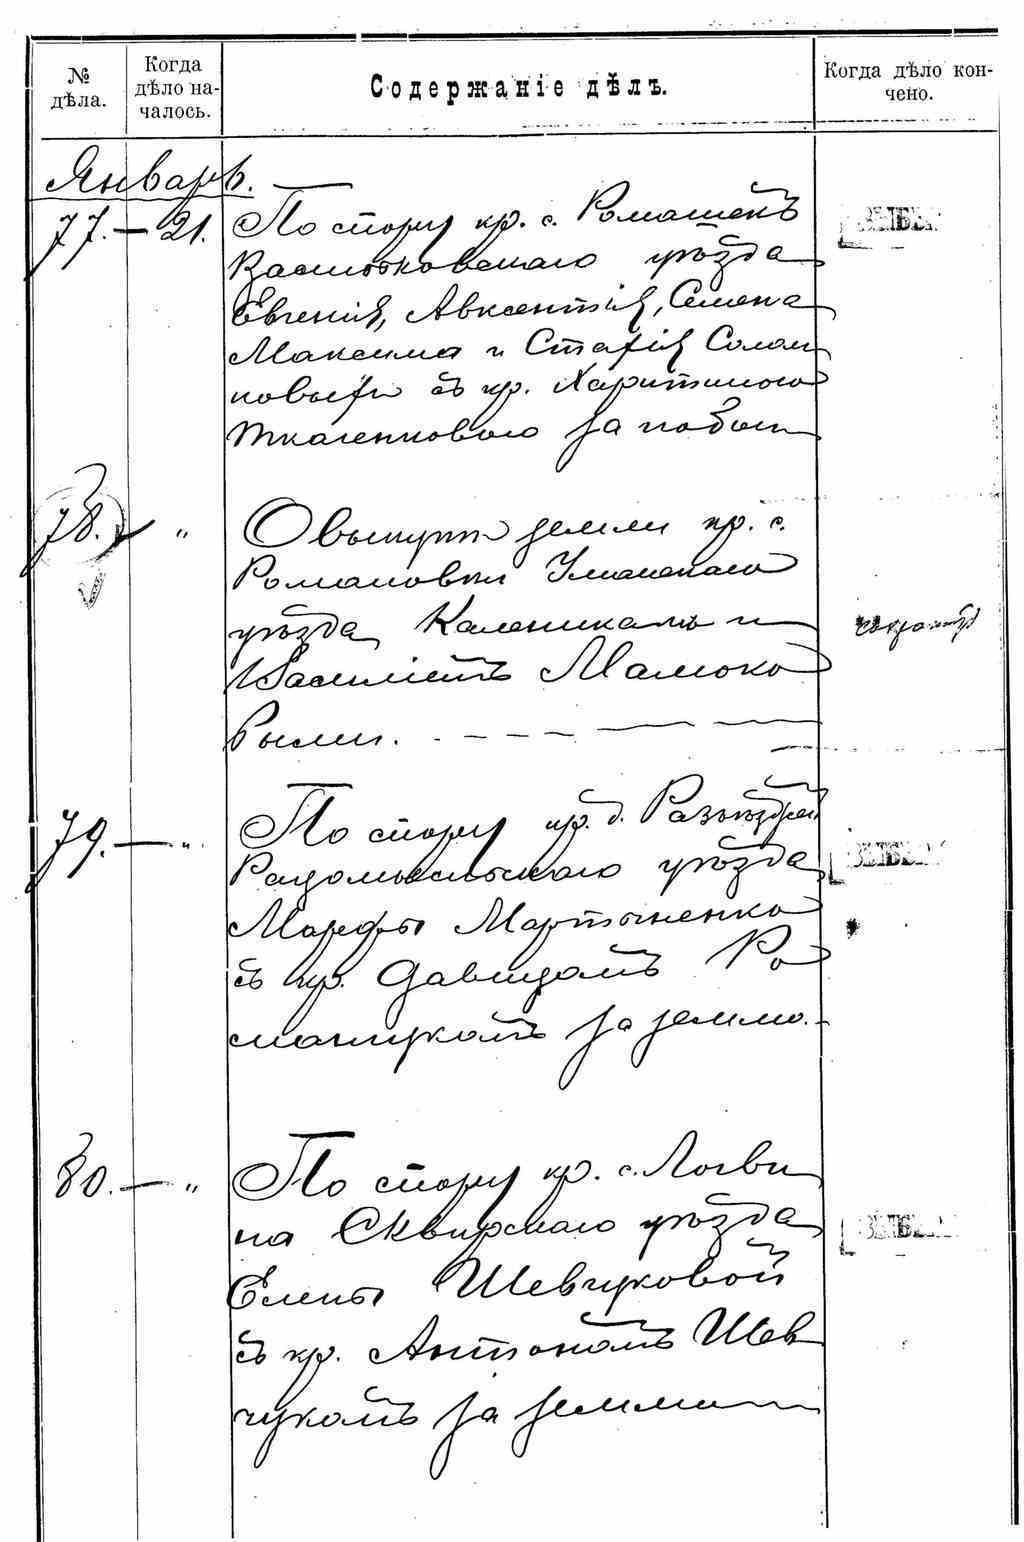 № дѣла.
Когда дѣло на-
чалось.
Содержаніе дѣлъ.
Когда дѣло кон-
чено.
Январь.
77. — 21. По спору кр. с. Ромашекъ
Васильковскаго уѣзда
Евгенія, Авксентія, Семена
Максима и
съ кр.
Ткаченковою за побои
78. " О выкупѣ земли кр. с.
Романовки Уманскаго
уѣзда Калеником и
Василіемъ Мамоко
выми.
79. — " По спору кр. д.
Радомысльскаго уѣзда
Марфы Мартыненко
съ кр. Давидомъ Ро
манчукомъ за землю.
80. — " По спору кр. с. Логви
на Сквирскаго уѣзда
Елены Шевчуковой
съ кр. Антономъ Шев
чукомъ за земли